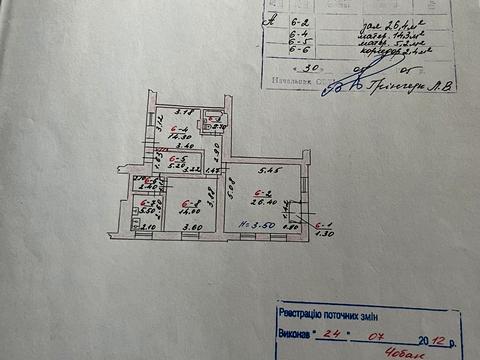 А 6-2 зал 26,4 м²
6-4 матер. 14,3 м²
6-5 матер. 5,2 м²
6-6 коридор 2,4 м²
"30"
05
Начальник
3.18
3.12
6-4
14.30
3.40
2.90
1.63
6-5
5.20
3.22
1.45
5.45
5.08
6-2
26.40
H=3.50
1.80
6-1
1.30
2.40
3.88
14.00
5.50
2.60
2.10
3.60
Реєстрацію поточних змін
Виконав "24" 07 2012 р.
Чобан